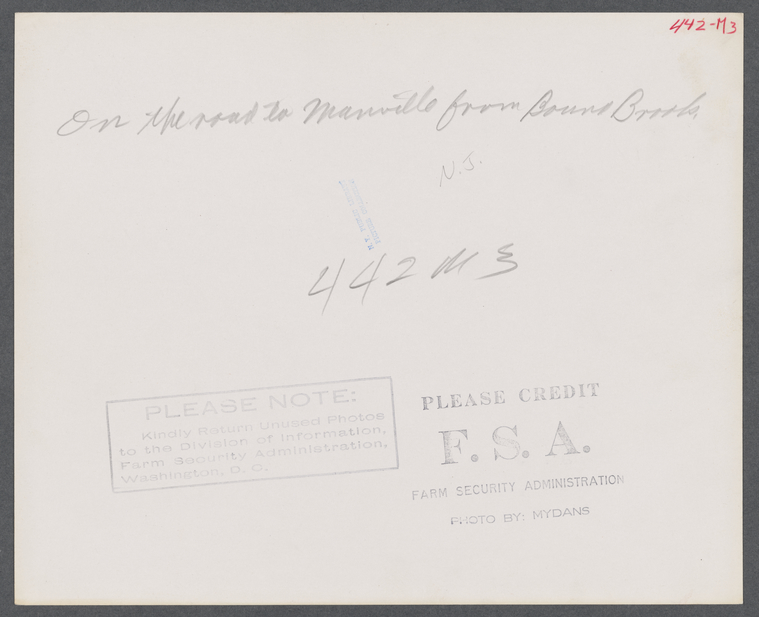 442-M3
On the road to Manville from Bound Brook.
N.J.
442 M 3
PLEASE NOTE:
Kindly Return Unused Photos
to the Division of Information,
Farm Security Administration,
Washington, D. C.
PLEASE CREDIT
F. S. A.
FARM SECURITY ADMINISTRATION
PHOTO BY: MYDANS